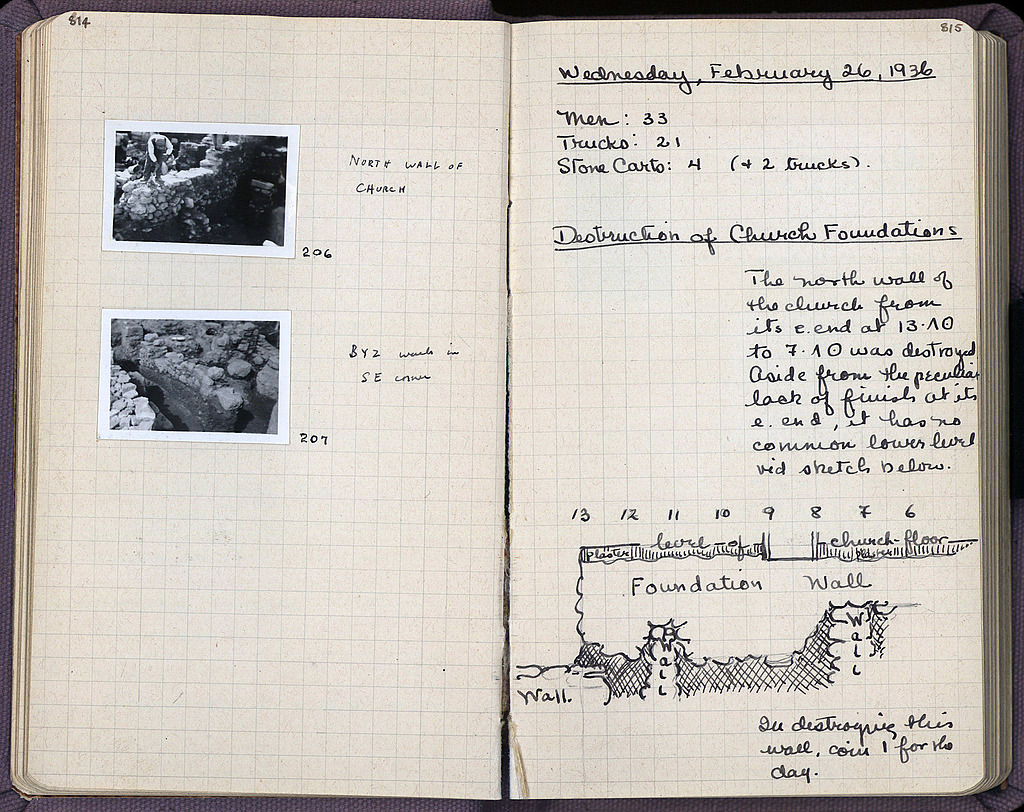 814
NORTH WALL OF
CHURCH
206
BYZ walls in
SE corner
207
815
Wednesday, February 26, 1936
Men: 33
Trucks: 21
Stone Carts: 4 (+ 2 trucks).
Destruction of Church Foundations
The north wall of
the church from
its e. end at 13·10
to 7·10 was destroyed
Aside from the peculiar
lack of finish at its
e. end, it has no
common lower level
vid sketch below.
13 12 11 10 9 8 7 6
plaster level of church floor
Foundation Wall
Wall
Wall
Wall.
In destroying this
wall, coin 1 for the
day.